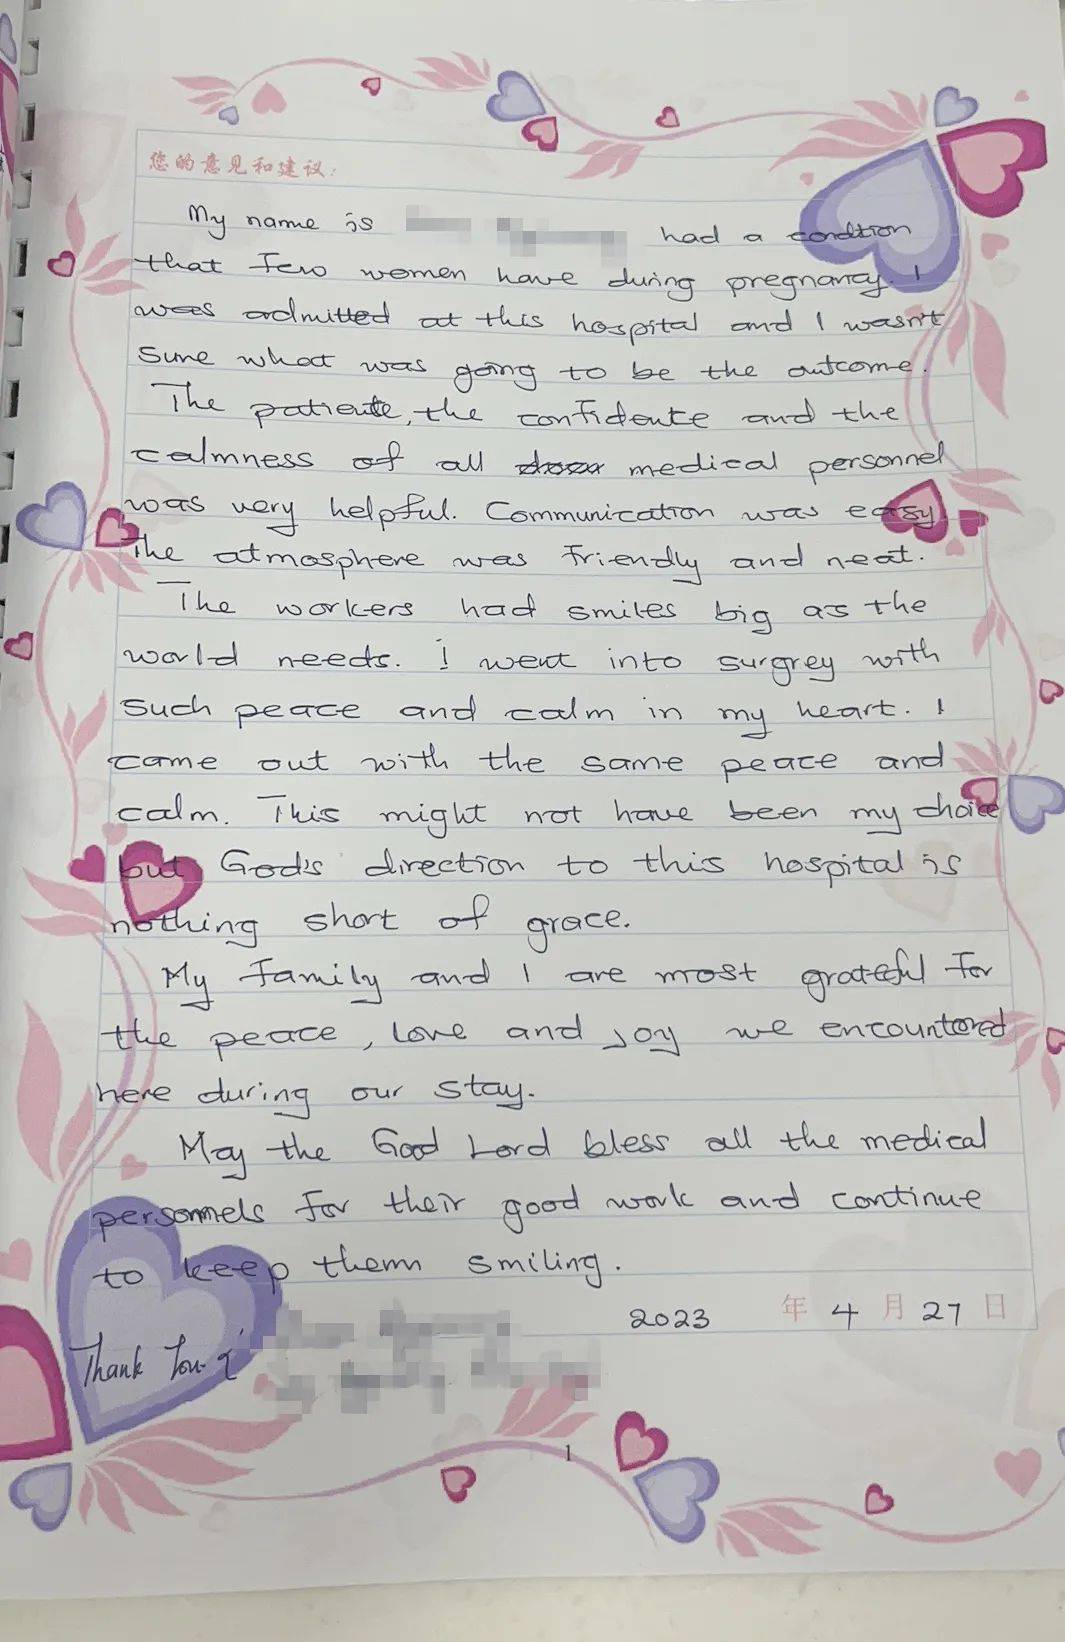 您的意见和建议:
My name is had a condtion
that few women have during pregnancy. I
was admitted at this hospital and I wasn't
sure what was going to be the outcome.
The patiente, the confidente and the
calmness of all medical personnel
was very helpful. Communication was easy
The atmosphere was friendly and neat.
The workers had smiles big as the
world needs. I went into surgrey with
such peace and calm in my heart. I
came out with the same peace and
calm. This might not have been my choice
but God's direction to this hospital is
nothing short of grace.
My family and I are most grateful for
the peace, love and joy we encountered
here during our stay.
May the Good Lord bless all the medical
personnels for their good work and continue
to keep them smiling.
2023 年 4 月 27 日
Thank You
1